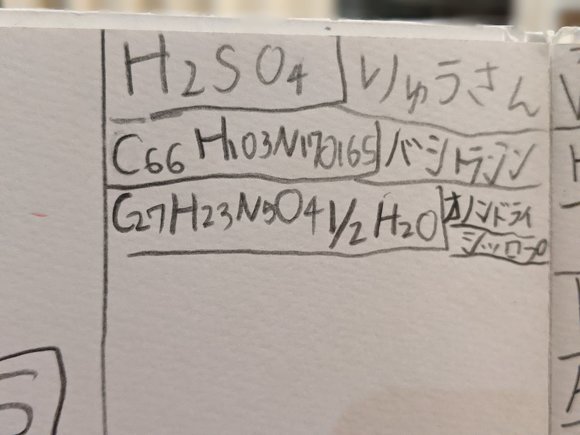 H2SO4 りゅうさん
C66H103N17O16S バシトラシン
C27H23N5O4 1/2 H2O オノンドライ
シロップ